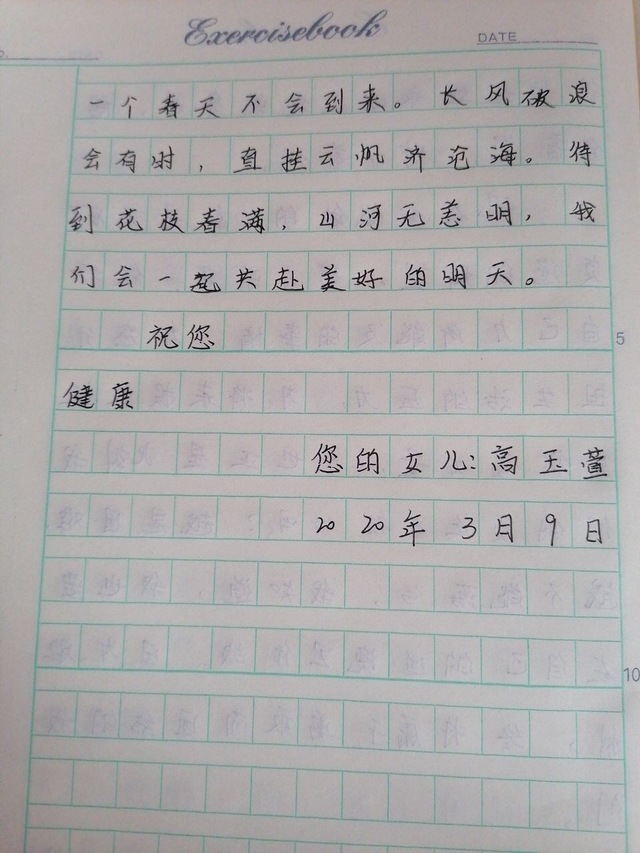 Exercisebook
DATE
一个春天不会到来。长风破浪
会有时，直挂云帆济沧海。待
到花枝春满，山河无恙明，我
们会一起共赴美好的明天。
祝您
5
健康
您的女儿：高玉萱
2020年3月9日
10